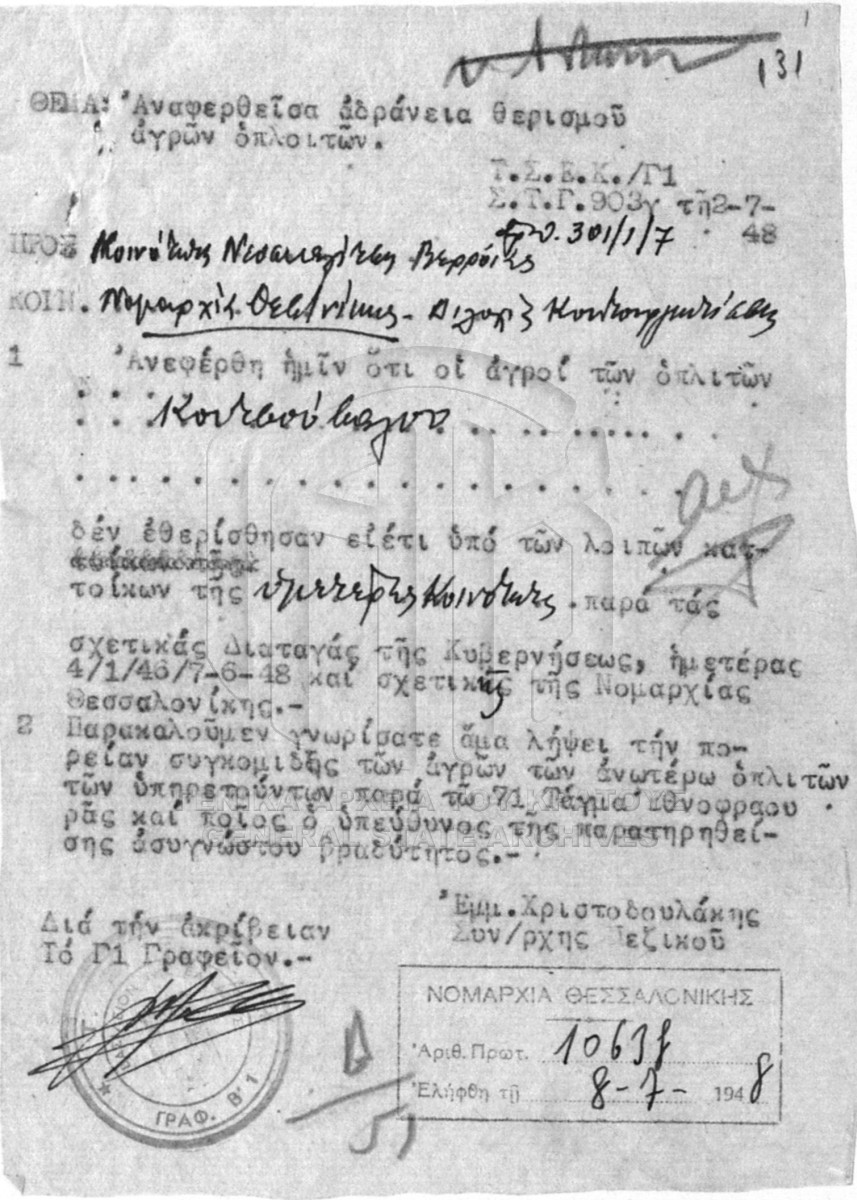 131
ΘΕΜΑ: Ἀναφερθεῖσα ἀδράνεια θερισμοῦ
ἀγρῶν ὁπλοιτῶν.
Τ.Σ.Ε.Κ./Γ1
Σ.Τ.Γ. 903γ τῇ 2-7-
48
301/1/7
ΠΡΟΣ Κοινότητα Βερροίας
ΚΟΙΝ. Νομαρχία Θεσ/νίκης -
1 Ἀνεφέρθη ἡμῖν ὅτι οἱ ἀγροί τῶν ὁπλιτῶν
. . . . . . . . . . . .
. . . . . . . . . . . . . . . . . .
δέν ἐθερίσθησαν εἰέτι ὑπό τῶν λοιπῶν κατ-
τοίκων τῆς ὑμετέρας Κοινότητος . παρά τάς
σχετικάς Διαταγάς τῆς Κυβερνήσεως, ἡμετέρας
4/1/46/7-6-48 καί σχετικῆς τῆς Νομαρχίας
Θεσσαλονίκης.-
2 Παρακαλοῦμεν γνωρίσατε ἅμα λήψει τήν πο-
ρείαν συγκομιδῆς τῶν ἀγρῶν τῶν ἀνωτέρω ὁπλιτῶν
τῶν ὑπηρετούντων παρά τῶ 71 Τάγμα Ἐθνοφρου
ρᾶς καί ποῖος ὁ ὑπεύθυνος τῆς παρατηρηθεί-
σης ἀσυγνώστου βραδύτητος.-
ΓΕΝΙΚΑ ΑΡΧΕΙΑ ΤΟΥ ΚΡΑΤΟΥΣ
GENERAL STATE ARCHIVES
Ἐμμ. Χριστοδουλάκης
Συν/ρχης Πεζικοῦ
Διά τήν ἀκρίβειαν
Τό Γ1 Γραφεῖον.-
ΓΡΑΦ. Β' 1
ΝΟΜΑΡΧΙΑ ΘΕΣΣΑΛΟΝΙΚΗΣ
Ἀριθ. Πρωτ. 10638
Ἐλήφθη τῇ 8-7- 1948